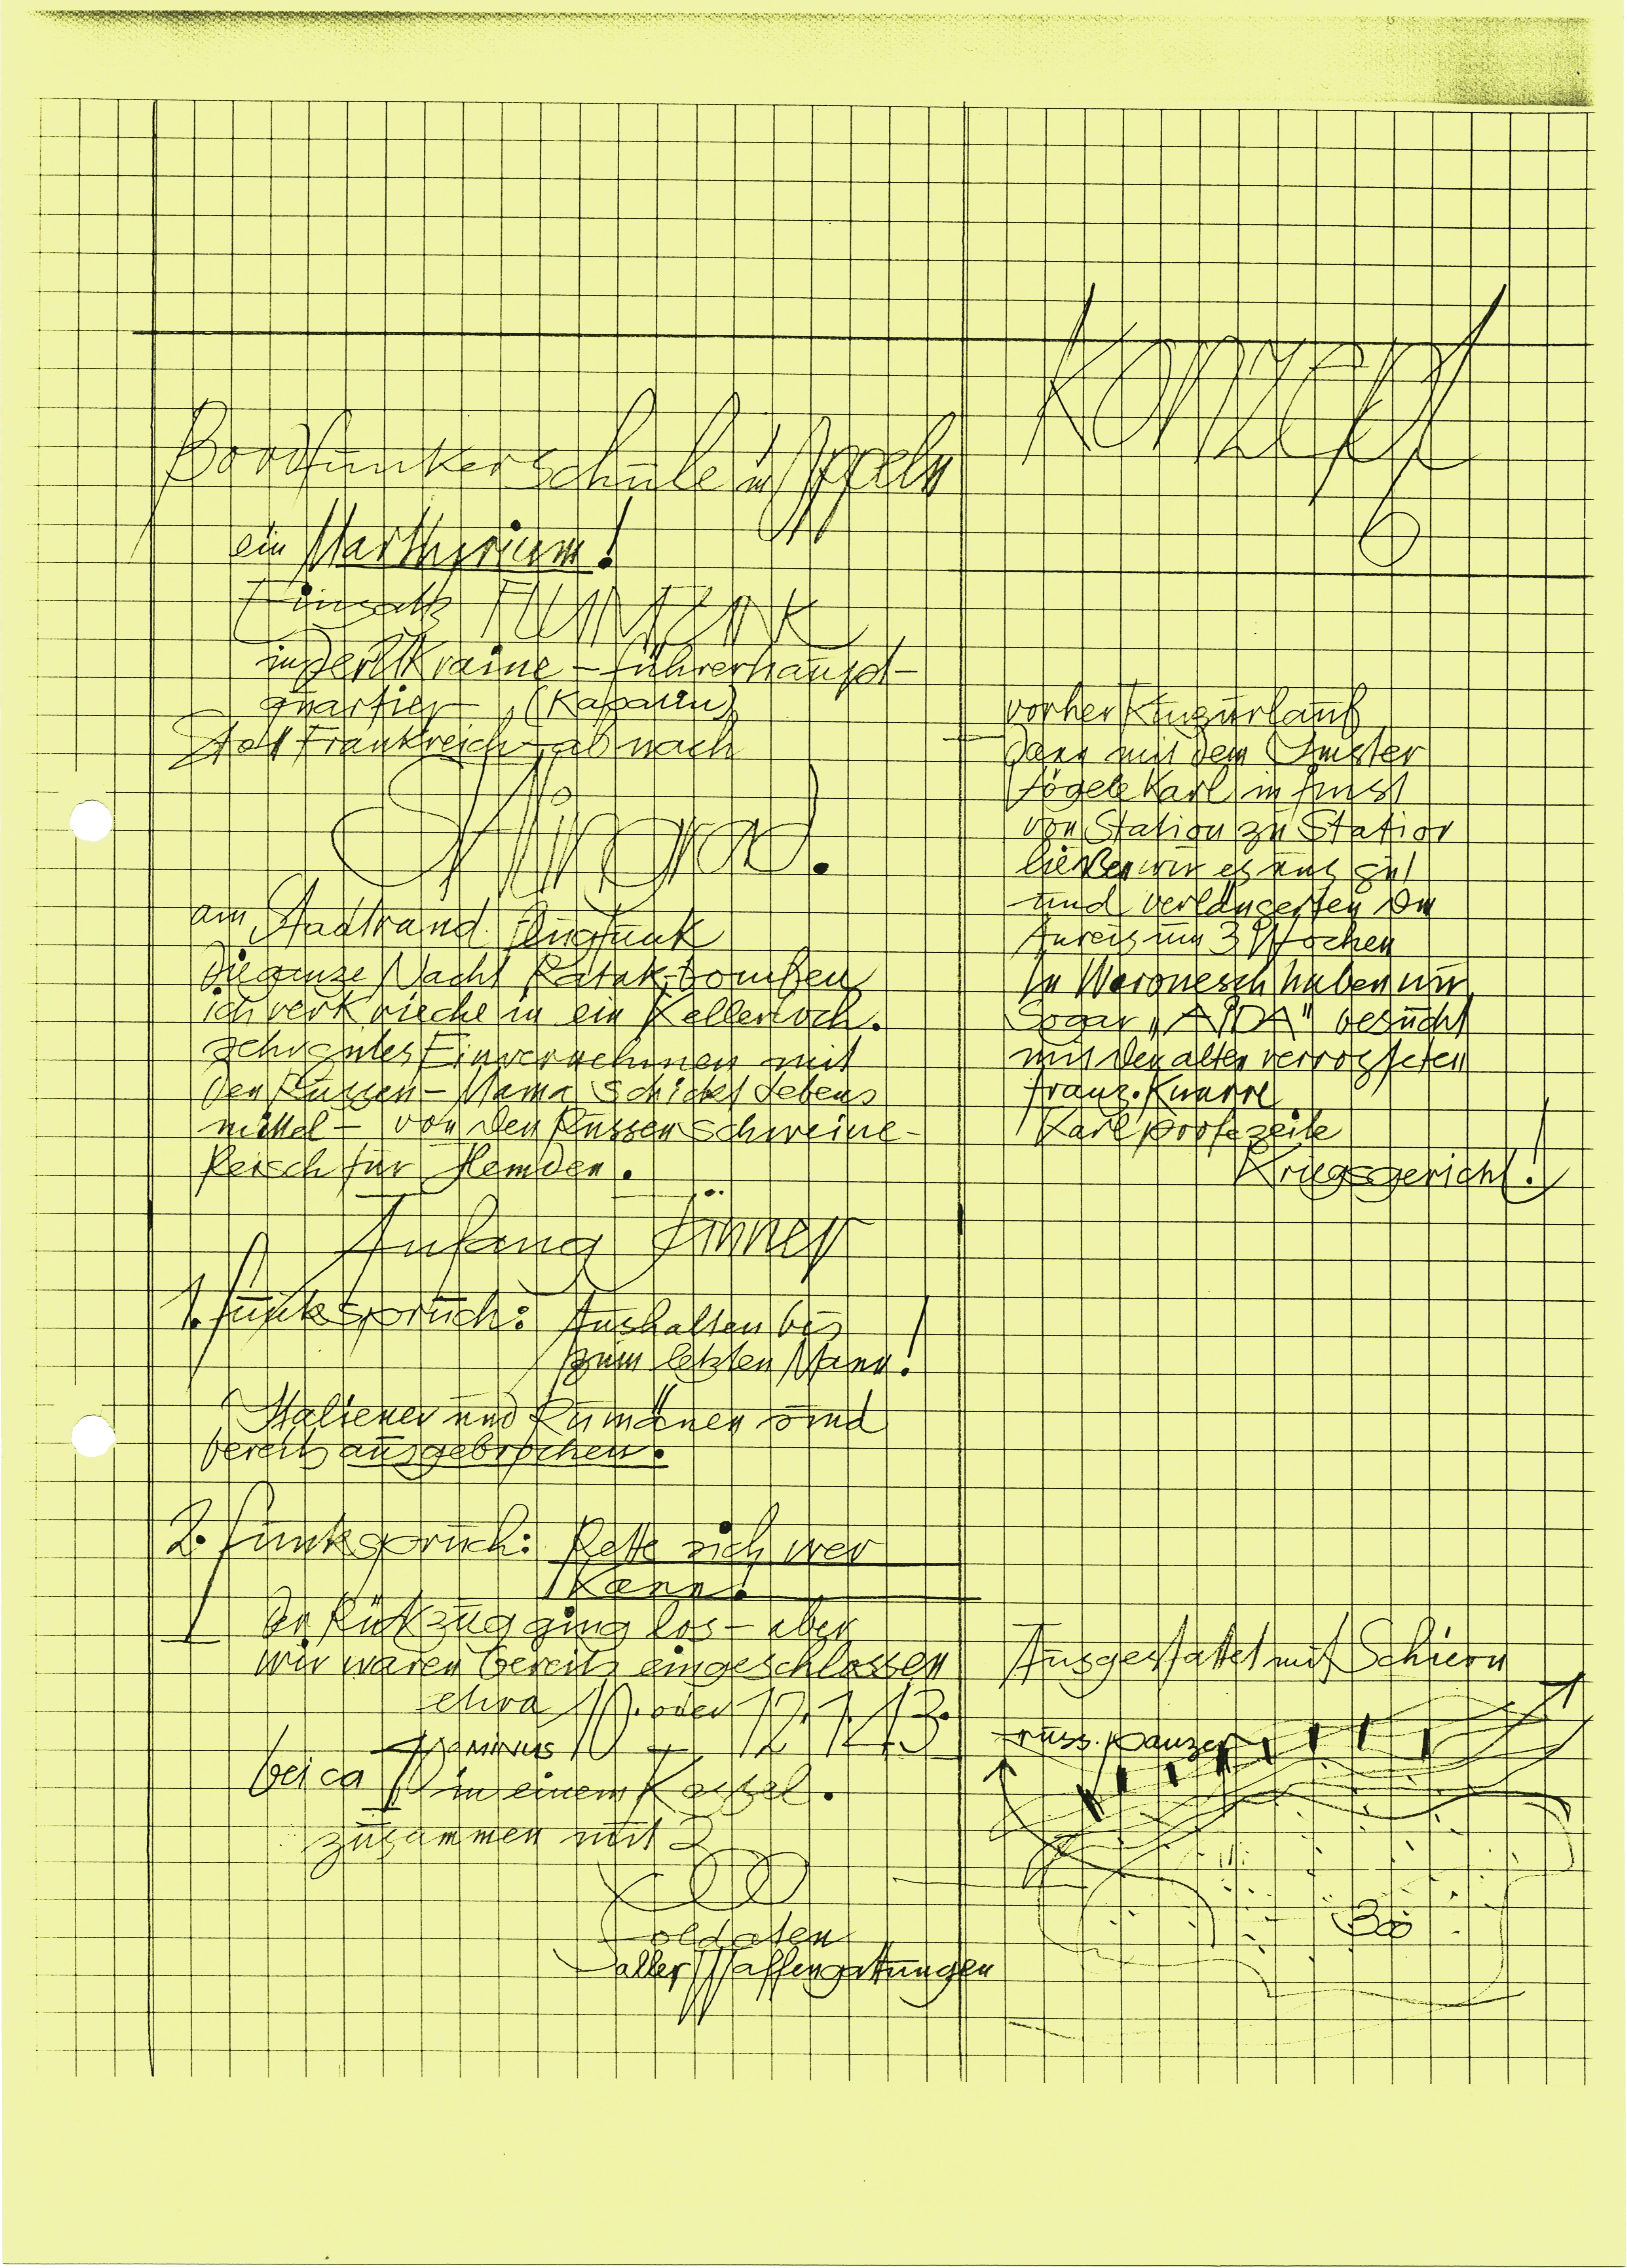 KONZEPT
6
Bordfunkerschule in Oppeln
ein Marthyrium!
Einsatz FLUMFUNK
in der Ukraine – Führerhaupt-
quartier
Statt Frankreich – ab nach
St lingrad.
am Stadtrand Flugfunk
Die ganze Nacht Ratak-bomben
ich verkrieche in ein Kellerloch.
sehr gutes Einvernehmen mit
den Russen – Mama schickt Lebens
mittel – von den Russen schweine-
fleisch für Hemden.
Anfang Jänner
1. Funkspruch: Aushalten bis
zum letzten Mann!
Italiener und Rumänen sind
bereits ausgebrochen.
2. Funkspruch: Rette sich wer
kann!
Der Rückzug ging los – aber
wir waren bereits eingeschlossen
etwa 10. oder 12.1.43.
bei ca MINUS
in einem Kessel.
zusammen mit 300
Soldaten
aller Waffengattungen
vorher Kurzurlaub
dann mit dem Imster
Karl in Imst
von Station zu Station
ließen wir es uns gut
und verlängerten die
Anreis um 3 Wochen
In Woronesch haben wir
sogar „AIDA" besucht
mit den alten verrosteten
franz. Knarre
Karl profezeite
Kriegsgericht!
Ausgestattet mit Schiern
russ. panzer
300